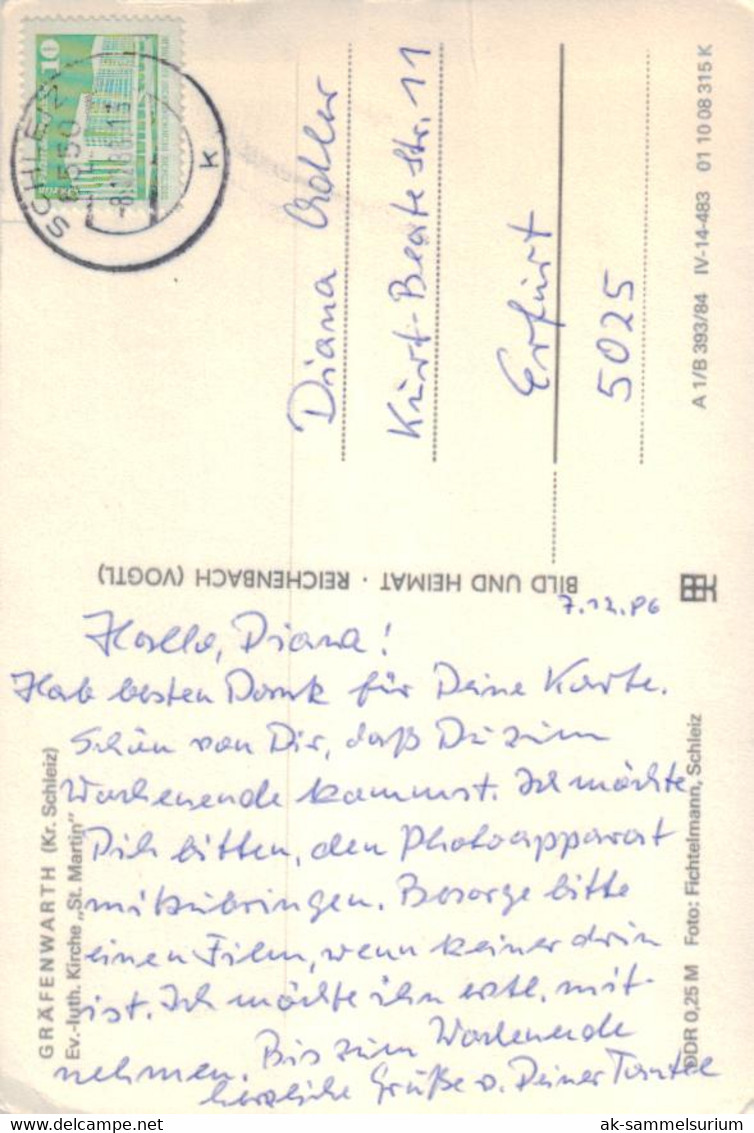 10
SCHLEIZ
6550
K
Diana Adler
Kurt-Beate-Str. 11
Erfurt
5025
A 1/B 393/84 IV-14-483 01 10 08 315 K
BILD UND HEIMAT · REICHENBACH (VOGTL)
7.12.86
Hallo, Diana!
Hab besten Dank für Deine Karte.
Schön von Dir, daß Du zum
Wochenende kommst. Ich möchte
Dich bitten, den Photoapparat
mitzubringen. Besorge bitte
einen Film, wenn keiner drin
ist. Ich möchte ihn evtl. mit-
nehmen. Bis zum Wochenende
herzliche Grüße v. Deiner Tante
GRÄFENWARTH (Kr. Schleiz)
Ev.-luth. Kirche „St. Martin"
DDR 0,25 M Foto: Fichtelmann, Schleiz
ak-sammelsurium